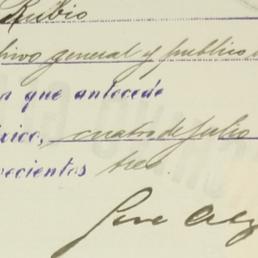 Rubio
hivo general y publico
que antecede
xico, cuatro de julio
vecientos tres